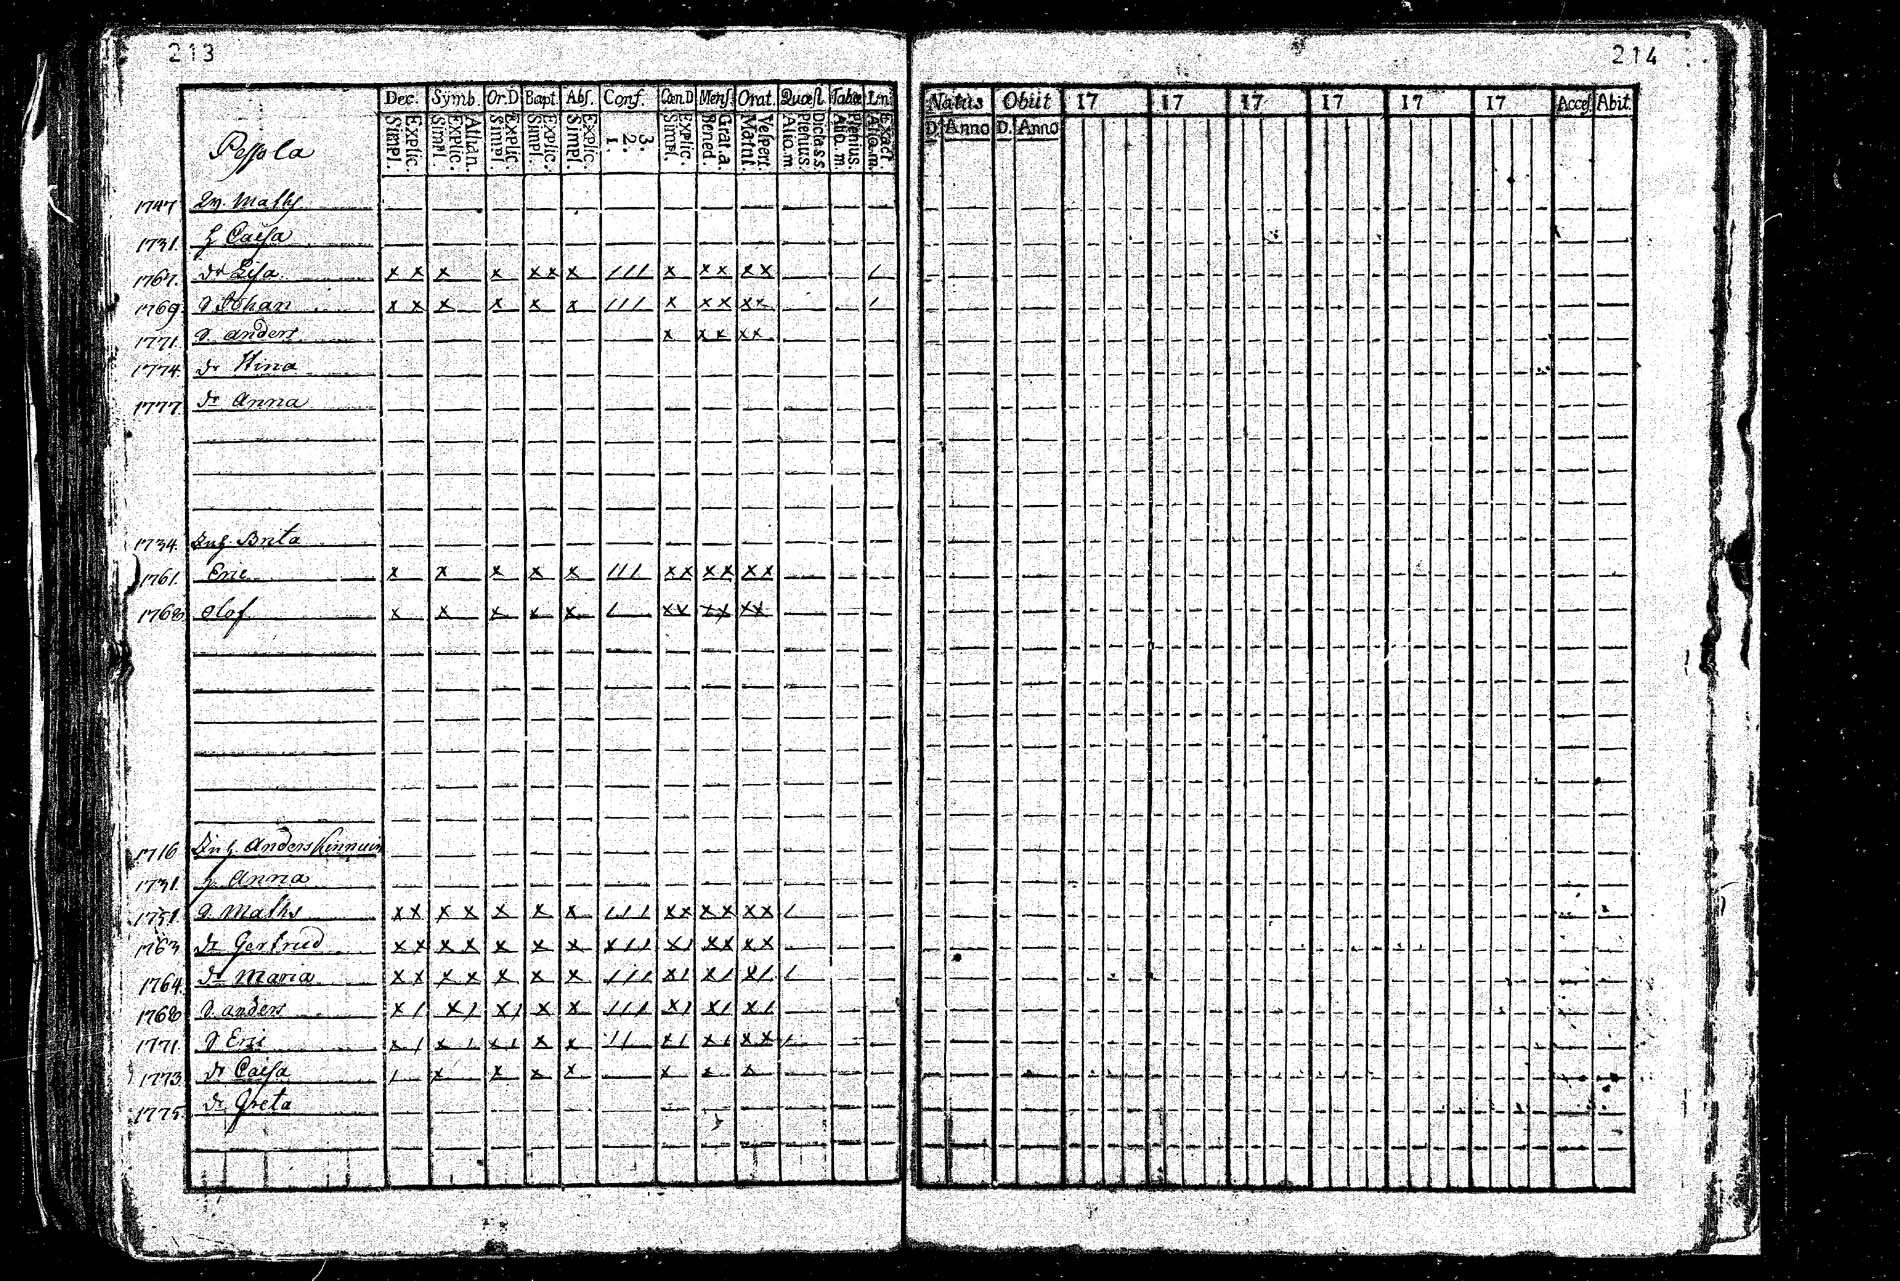 213
Dec. Symb. Or.D Bapt. Abs. Conf. Cœn.D Mens. Orat. Quæst. Tabœ
Simpl. Explic. Simpl. Explic. Athan. Simpl. Explic. Simpl. Explic. Simpl. Explic. 1. 2. 3. Simpl. Explic. Bened. Grat.a Matut. Vespert. Aliq.m Plenius. Dicta s.s. Aliq.m. Plenius. Aliq.m. Exact.
Pessola
1747 Maths
1731. h Caisa
1767. dr Lisa x x x x x x x / / / x x x x x /
1769 Johan x x x x x x / / / x x x x x /
1771. anders x x x x x
1774. dr Stina
1777. dr Anna
1734. Enk. Brita
1761. Eric x x x x x / / / x x x x x x
1768 Olof x x x x x / x x x x x x
1716 Anders Kinnuin
1731. h. Anna
1751. Maths x x x x x x x / / / x x x x x x /
1763 dr Gertrud x x x x x x x x / / x / x x x x
1764. dr Maria x x x x x x x / / / x / x / x / /
1768 anders x / x / x / x x / / / x / x / x /
1771. Eric x / x / x / x x / / x / x / x x /
1773 dr Caisa / x x x x x x x
1775. dr Greta
214
Natus Obiit 17 17 17 17 17 17 Acces. Abit.
D. Anno D. Anno